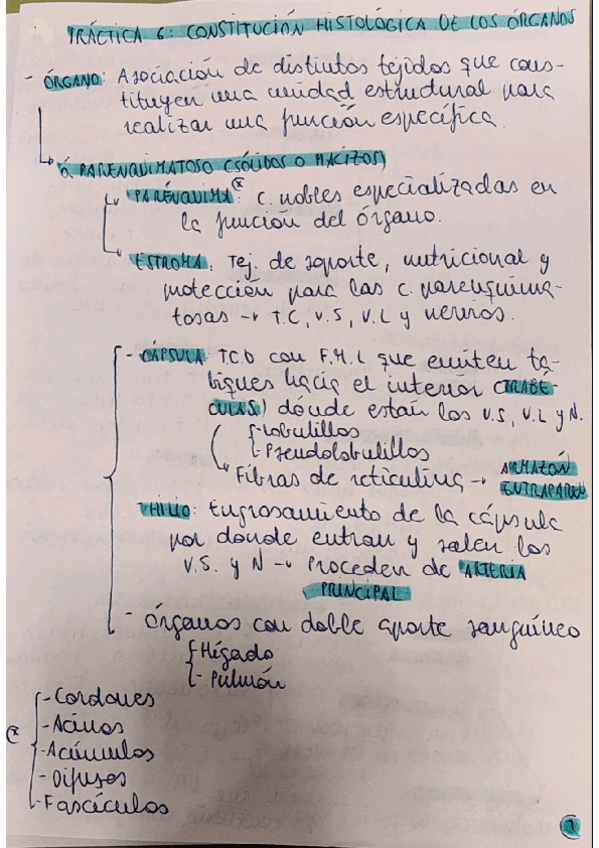 PRÁCTICA 6: CONSTITUCIÓN HISTOLÓGICA DE LOS ÓRGANOS
- ÓRGANO: Asociación de distintos tejidos que cons-
tituyen una unidad estructural para
realizar una función específica.
Ó. PARENQUIMATOSO (SÓLIDOS O MACIZOS)
PARÉNQUIMA*: C. nobles especializadas en
la función del órgano.
ESTROMA: Tej. de soporte, nutricional y
protección para las c. parenquima-
tosas → T.C, V.S, V.L y nervios.
- CÁPSULA: T.C.D con F.M.L que emiten ta-
biques hacia el interior (TRABÉ-
CULAS) dónde están los V.S, V.L y N.
- Lobulillos
- Pseudolobulillos
Fibras de reticulina → ARMAZÓN
ENTRAPAREN
- HILIO: Engrosamiento de la cápsula
por donde entran y salen los
V.S. y N → Proceden de ARTERIA
PRINCIPAL
- Órganos con doble aporte sanguíneo
- Hígado
- Pulmón
- Cordones
- Acinos
* - Acúmulos
- Difusos
- Fascículos
1